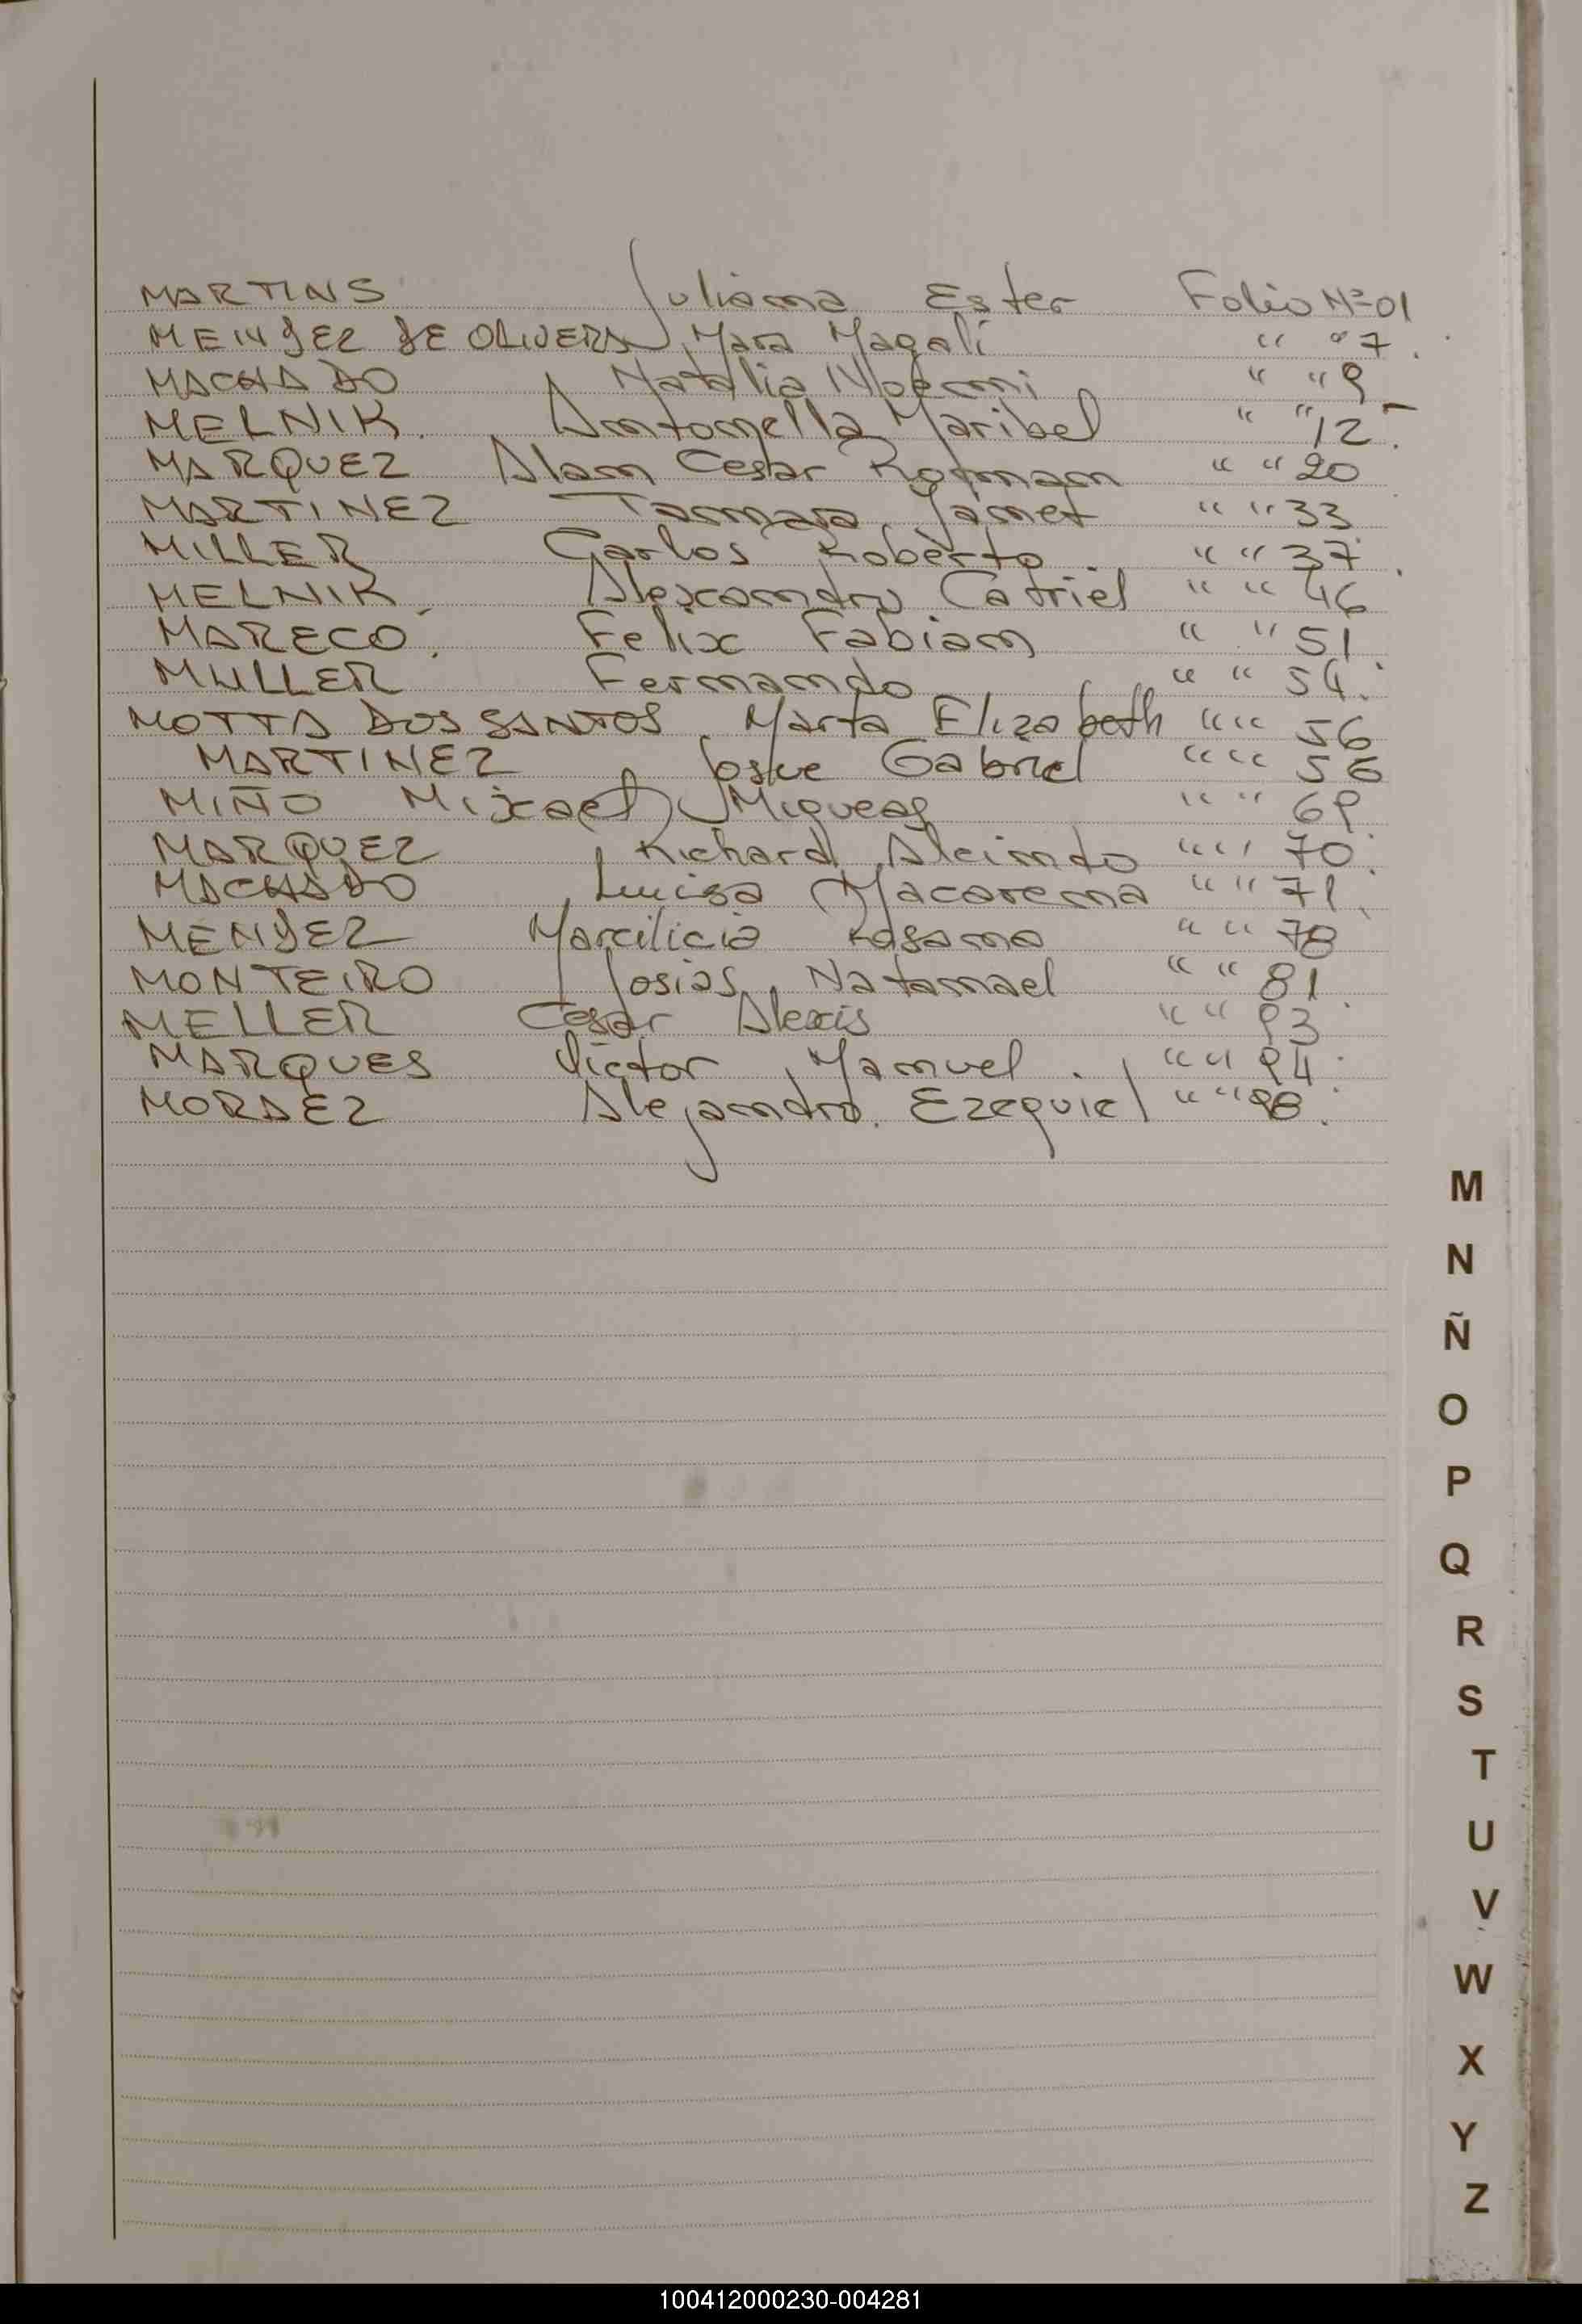 MARTINS Juliana Ester Folio Nº 01
MENDEZ DE OLIVERA Mara Magali " " 7.
MACHADO Natalia Noemi " " 9
MELNIK. Antonella Maribel " " 12.
MARQUEZ Alan Cesar Rotman " " 20
MARTINEZ Tamara Janet " " 33
MILLER Carlos Roberto " " 37.
MELNIK. Alexandro Catriel " " 46
MARECO. Felix Fabian " " 51
MULLER Fernando " " 54.
MOTTA DOS SANTOS Marta Elizabeth " " 56
MARTINEZ Josue Gabriel " " 56
MIÑO Mixael Miqueas " " 69
MARQUEZ Richard Alcindo " " 70
MACHADO Luisa Macarena " " 71.
MENDEZ Marcilicia Rosana " " 78
MONTEIRO Josias Natanael " " 81.
MELLER Cesar Alexis " " 93
MARQUES Victor Manuel. " " 94.
MORAEZ Alejandro Ezequiel " " 98.
M
N
Ñ
O
P
Q
R
S
T
U
V
W
X
Y
Z
100412000230-004281